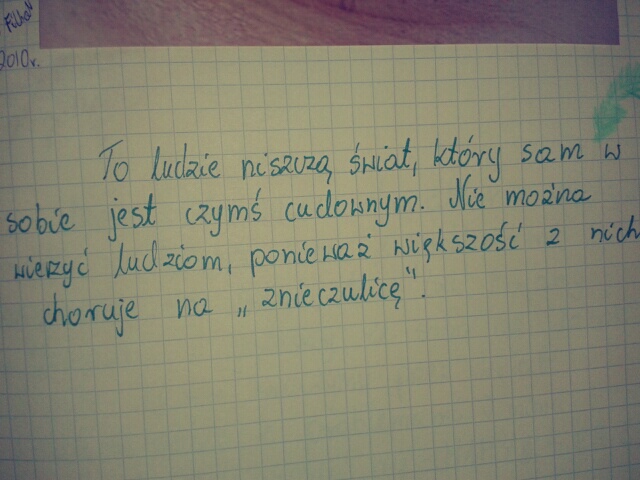 2010r.
To ludzie niszczą świat, który sam w
sobie jest czymś cudownym. Nie można
wierzyć ludziom, ponieważ większość z nich
choruje na „znieczulicę".